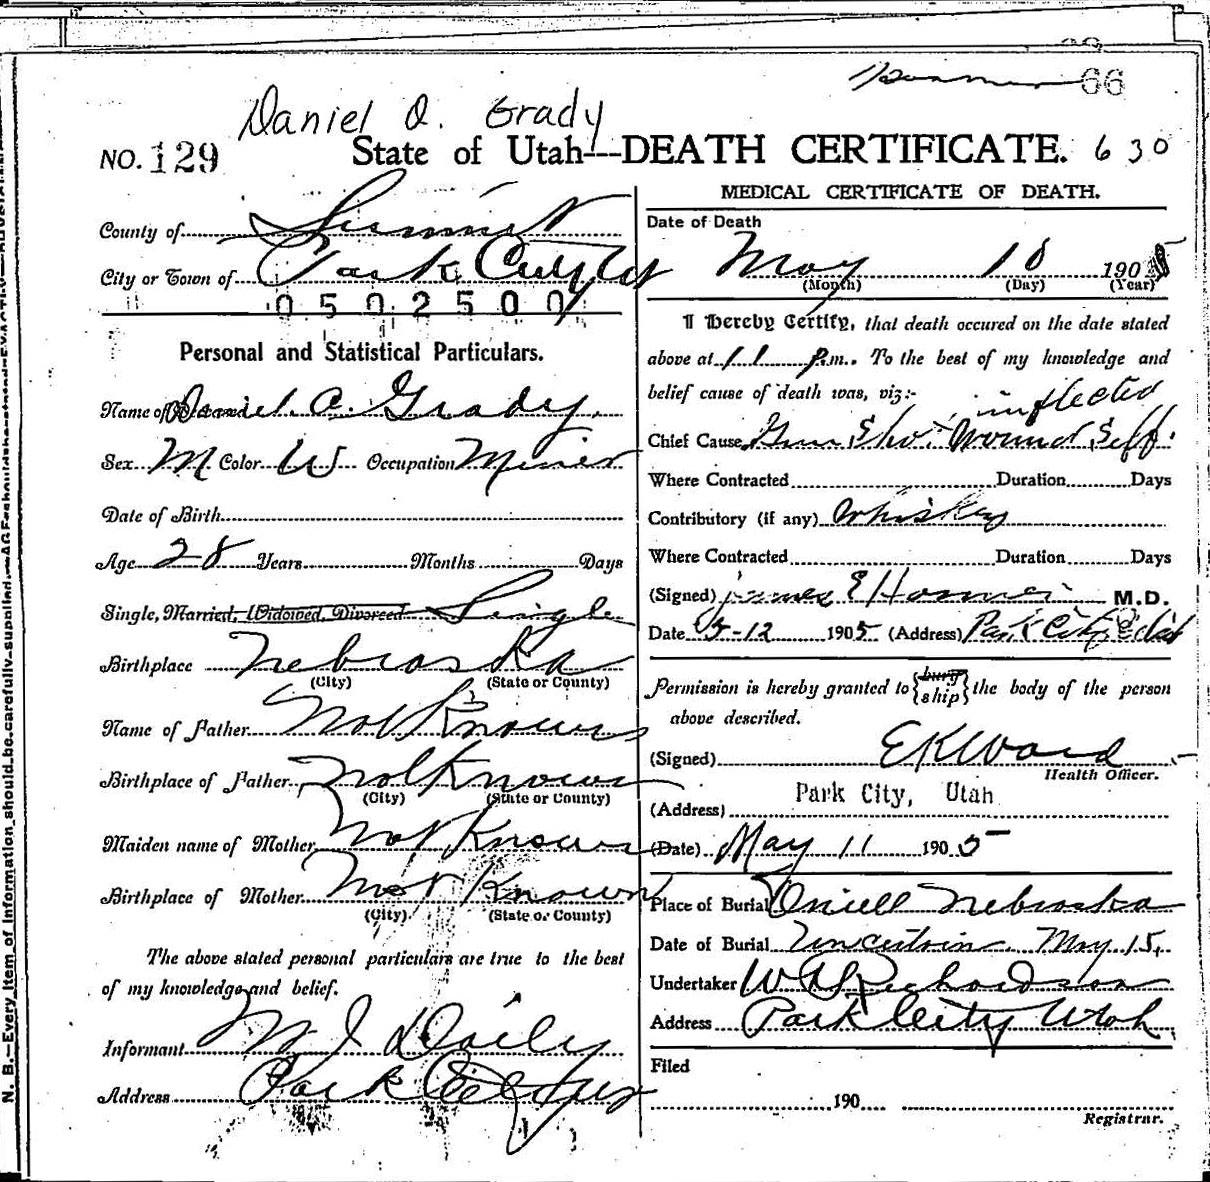 66
Daniel O. Grady
NO. 129 State of Utah—DEATH CERTIFICATE. 630
County of Summit
City or Town of Park City
0502500
Personal and Statistical Particulars.
Name of Daniel O. Grady
Sex M Color W Occupation Miner
Date of Birth
Age 28 Years Months Days
Single, Married, Widowed, Divorced Single
Birthplace Nebraska
(City) (State or County)
Name of Father Not Known
Birthplace of Father Not Known
(City) (State or County)
Maiden name of Mother Not Known
Birthplace of Mother Not Known
(City) (State or County)
The above stated personal particulars are true to the best
of my knowledge and belief.
Informant M J Daily
Address Park City
MEDICAL CERTIFICATE OF DEATH.
Date of Death
May 10 1905
(Month) (Day) (Year)
I Hereby Certify, that death occured on the date stated
above at 11 p.m. To the best of my knowledge and
belief cause of death was, viz:-
inflected
Chief Cause Gun Shot Wound Self
Where Contracted Duration Days
Contributory (if any) Whiskey
Where Contracted Duration Days
(Signed) James E Hosmer M.D.
Date 5-12 1905 (Address) Park City Utah
Permission is hereby granted to {bury ship} the body of the person
above described.
(Signed) E K Ward
Health Officer.
(Address) Park City, Utah
(Date) May 11 1905
Place of Burial Oniell Nebraska
Date of Burial Uncertain May 15,
Undertaker W Richardson
Address Park City Utah
Filed
190
Registrar.
N. B.—Every item of information should be carefully supplied. AGE should be